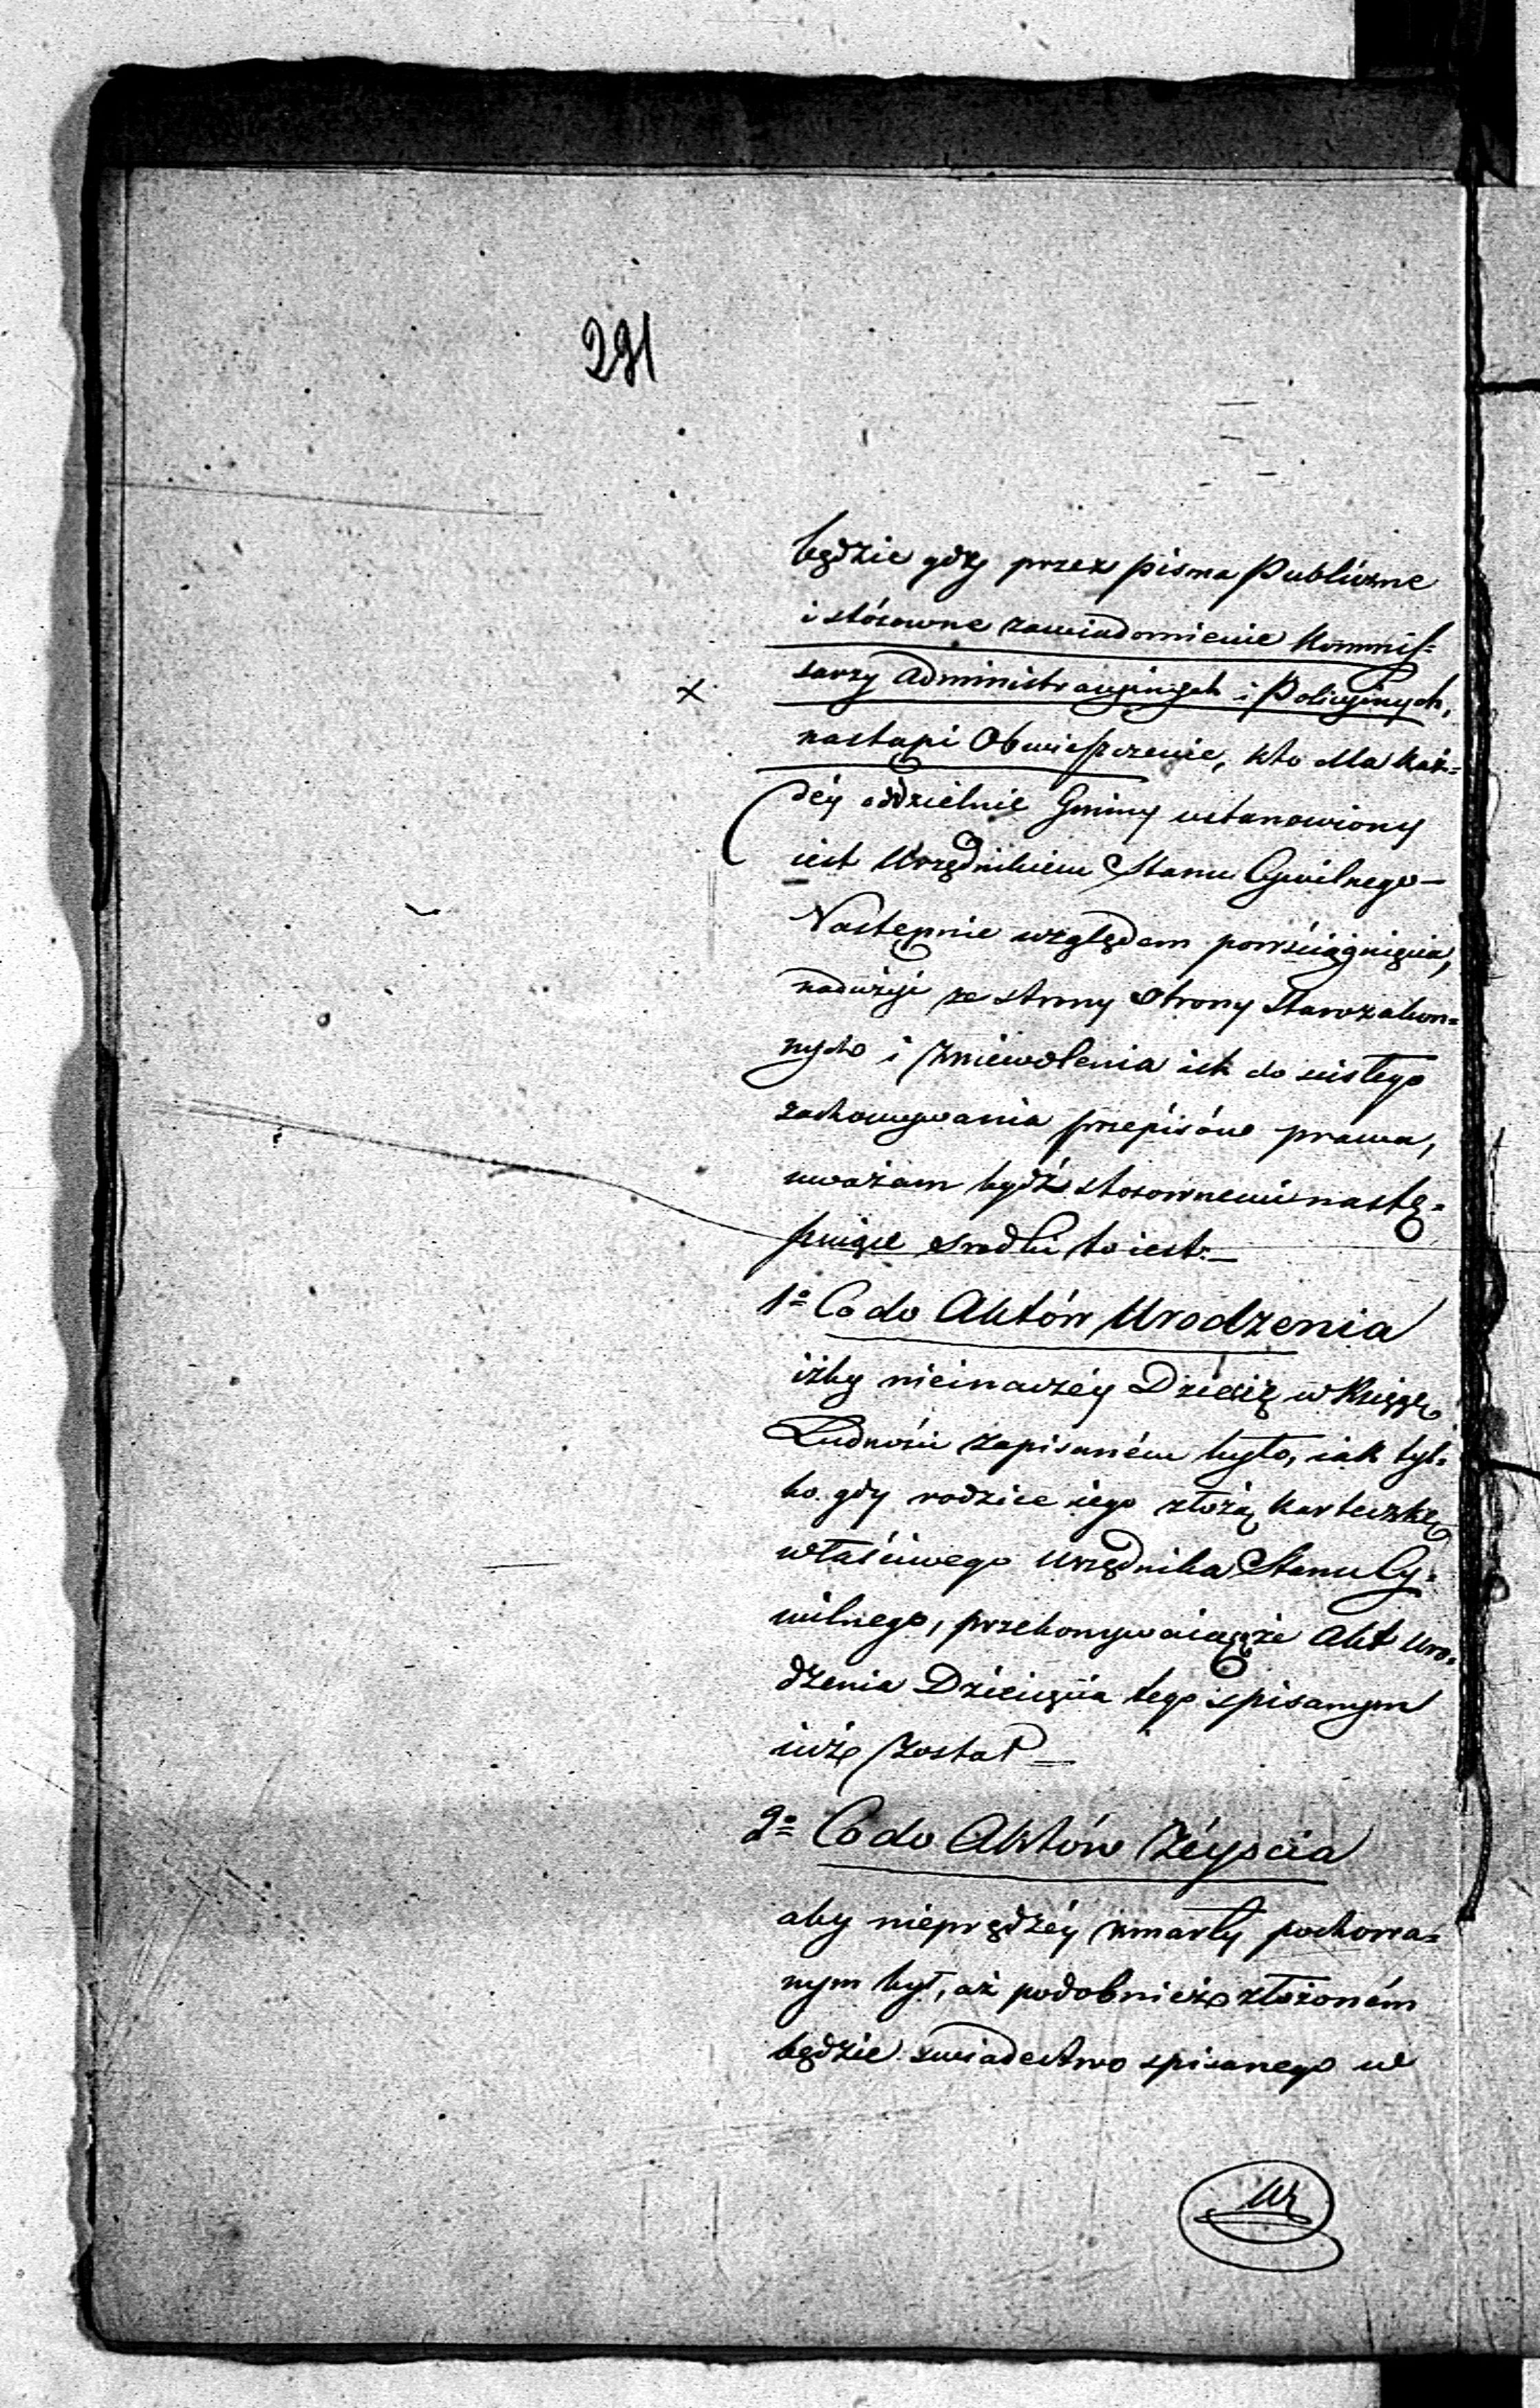 291
będzie gdy przez pisma Publiczne
i stósowne zawiadomienie Kommis=
sarzy Administracyinych i Policyinych,
nastąpi Obwieszczenie, kto dla każ=
déy oddzielnie Gminy ustanowiony
iest Urzędnikiem Stanu Cywilnego —
Następnie względem powściągnięcia,
nadużyć ze strony Strony Starozakon=
nych i zniewolenia ich do ścisłego
zachowywania przepisów prawa,
uważam bydź stosownemi nastę=
puiące srodki to iest: —
1º Co do Aktów Urodzenia
iżby nieinaczéy Dziecię w Księgę
Ludności zapisaném było, iak tyl=
ko gdy rodzice iego złożą karteczkę
właściwego Urzędnika Stanu Cy=
wilnego, przekonywaiącą że Akt uro=
dzenia Dziecięcia tego spisanym
iuż został —
2º Co do Aktów Zéyscia
aby nieprędzéy zmarły pochowa=
nym był, aż podobnież złożoném
będzie swiadectwo spisanego w